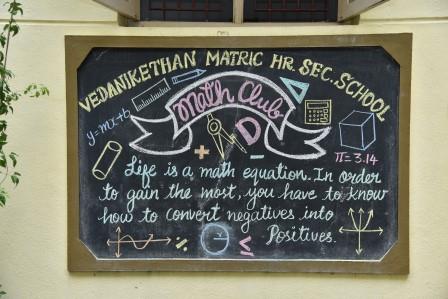 VEDANIKETHAN MATRIC HR. SEC. SCHOOL
Math Club
y=mx+b
π=3.14
Life is a math equation. In order
to gain the most, you have to know
how to convert negatives into
Positives.